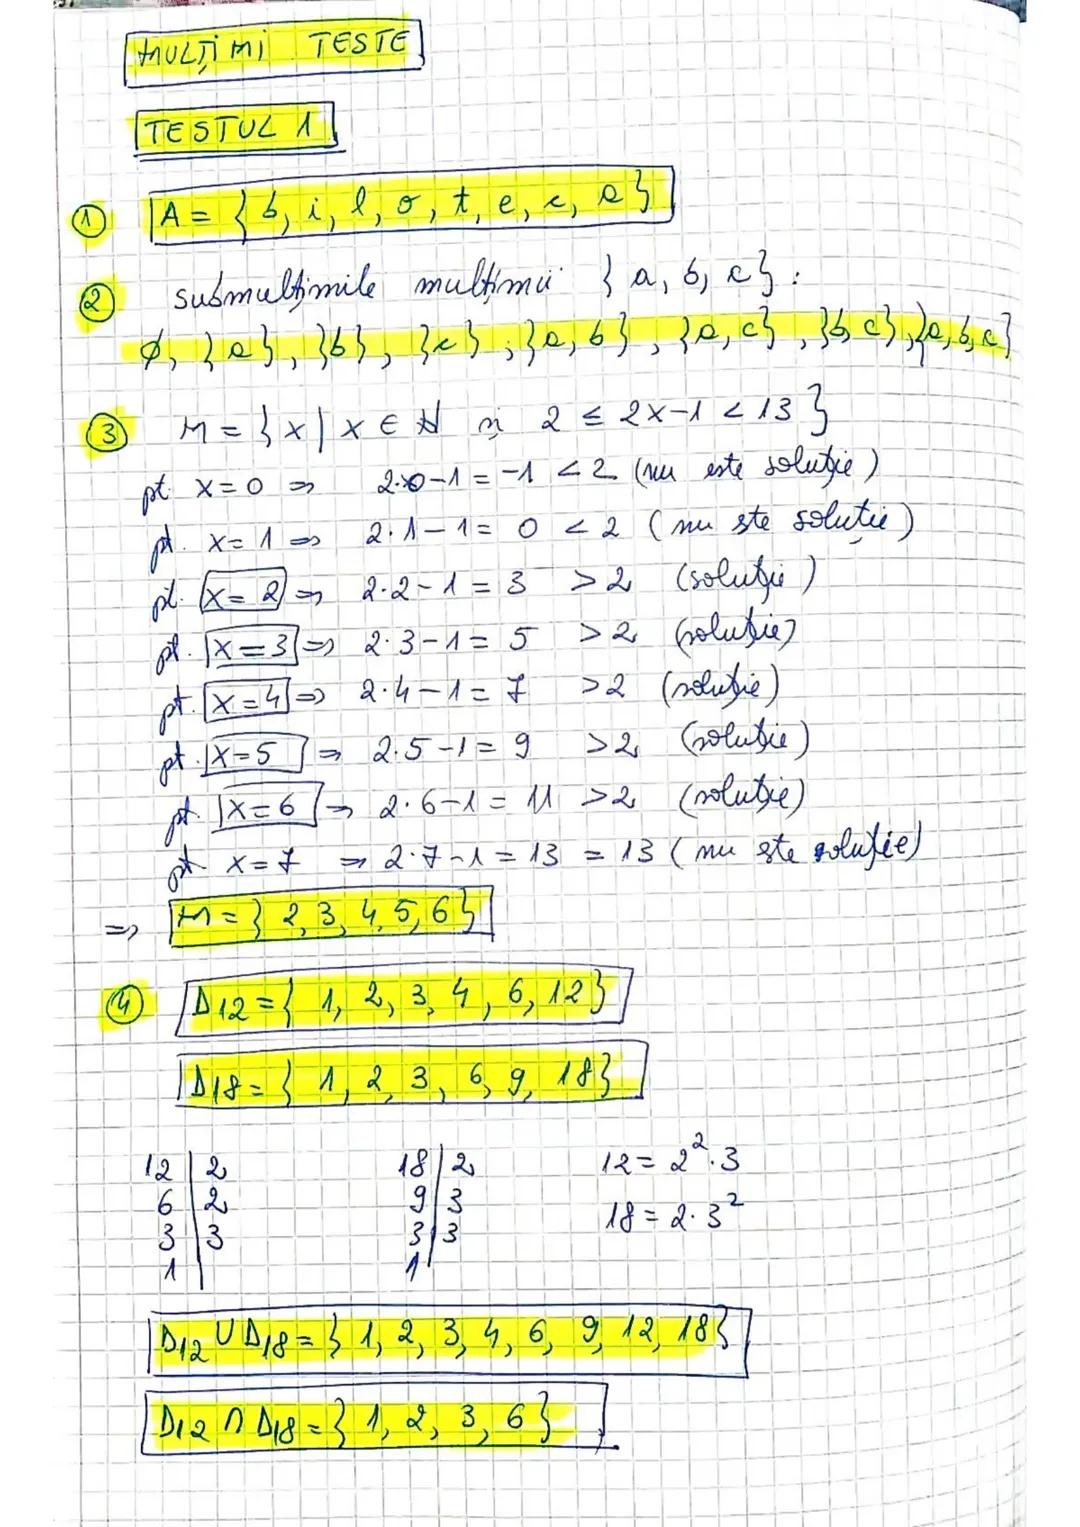 MULȚIMI TESTE
TESTUL 1
① A = { b, i, l, o, t, e, c, a }
② submulțimile mulțimii { a, b, c } :
∅, {a}, {b}, {c}, {a, b}, {a, c}, {b, c}, {a, b, c}
③ M = { x | x ∈ N și 2 ≤ 2x-1 < 13 }
pt x = 0 ⇒ 2·0-1 = -1 < 2 (nu este soluție)
pt. x = 1 ⇒ 2·1-1 = 0 < 2 (nu este soluție)
pt. x = 2 ⇒ 2·2-1 = 3 > 2 (soluție)
pt. x = 3 ⇒ 2·3-1 = 5 > 2 (soluție)
pt. x = 4 ⇒ 2·4-1 = 7 > 2 (soluție)
pt. x = 5 ⇒ 2·5-1 = 9 > 2 (soluție)
pt. x = 6 ⇒ 2·6-1 = 11 > 2 (soluție)
pt x = 7 ⇒ 2·7-1 = 13 = 13 (nu este soluție)
⇒ M = { 2, 3, 4, 5, 6 }
④ D12 = { 1, 2, 3, 4, 6, 12 }
D18 = { 1, 2, 3, 6, 9, 18 }
12 | 2 18 | 2 12 = 2²·3
6 | 2 9 | 3 18 = 2·3²
3 | 3 3 | 3
1 | 1 |
D12 ∪ D18 = { 1, 2, 3, 4, 6, 9, 12, 18 }
D12 ∩ D18 = { 1, 2, 3, 6 }